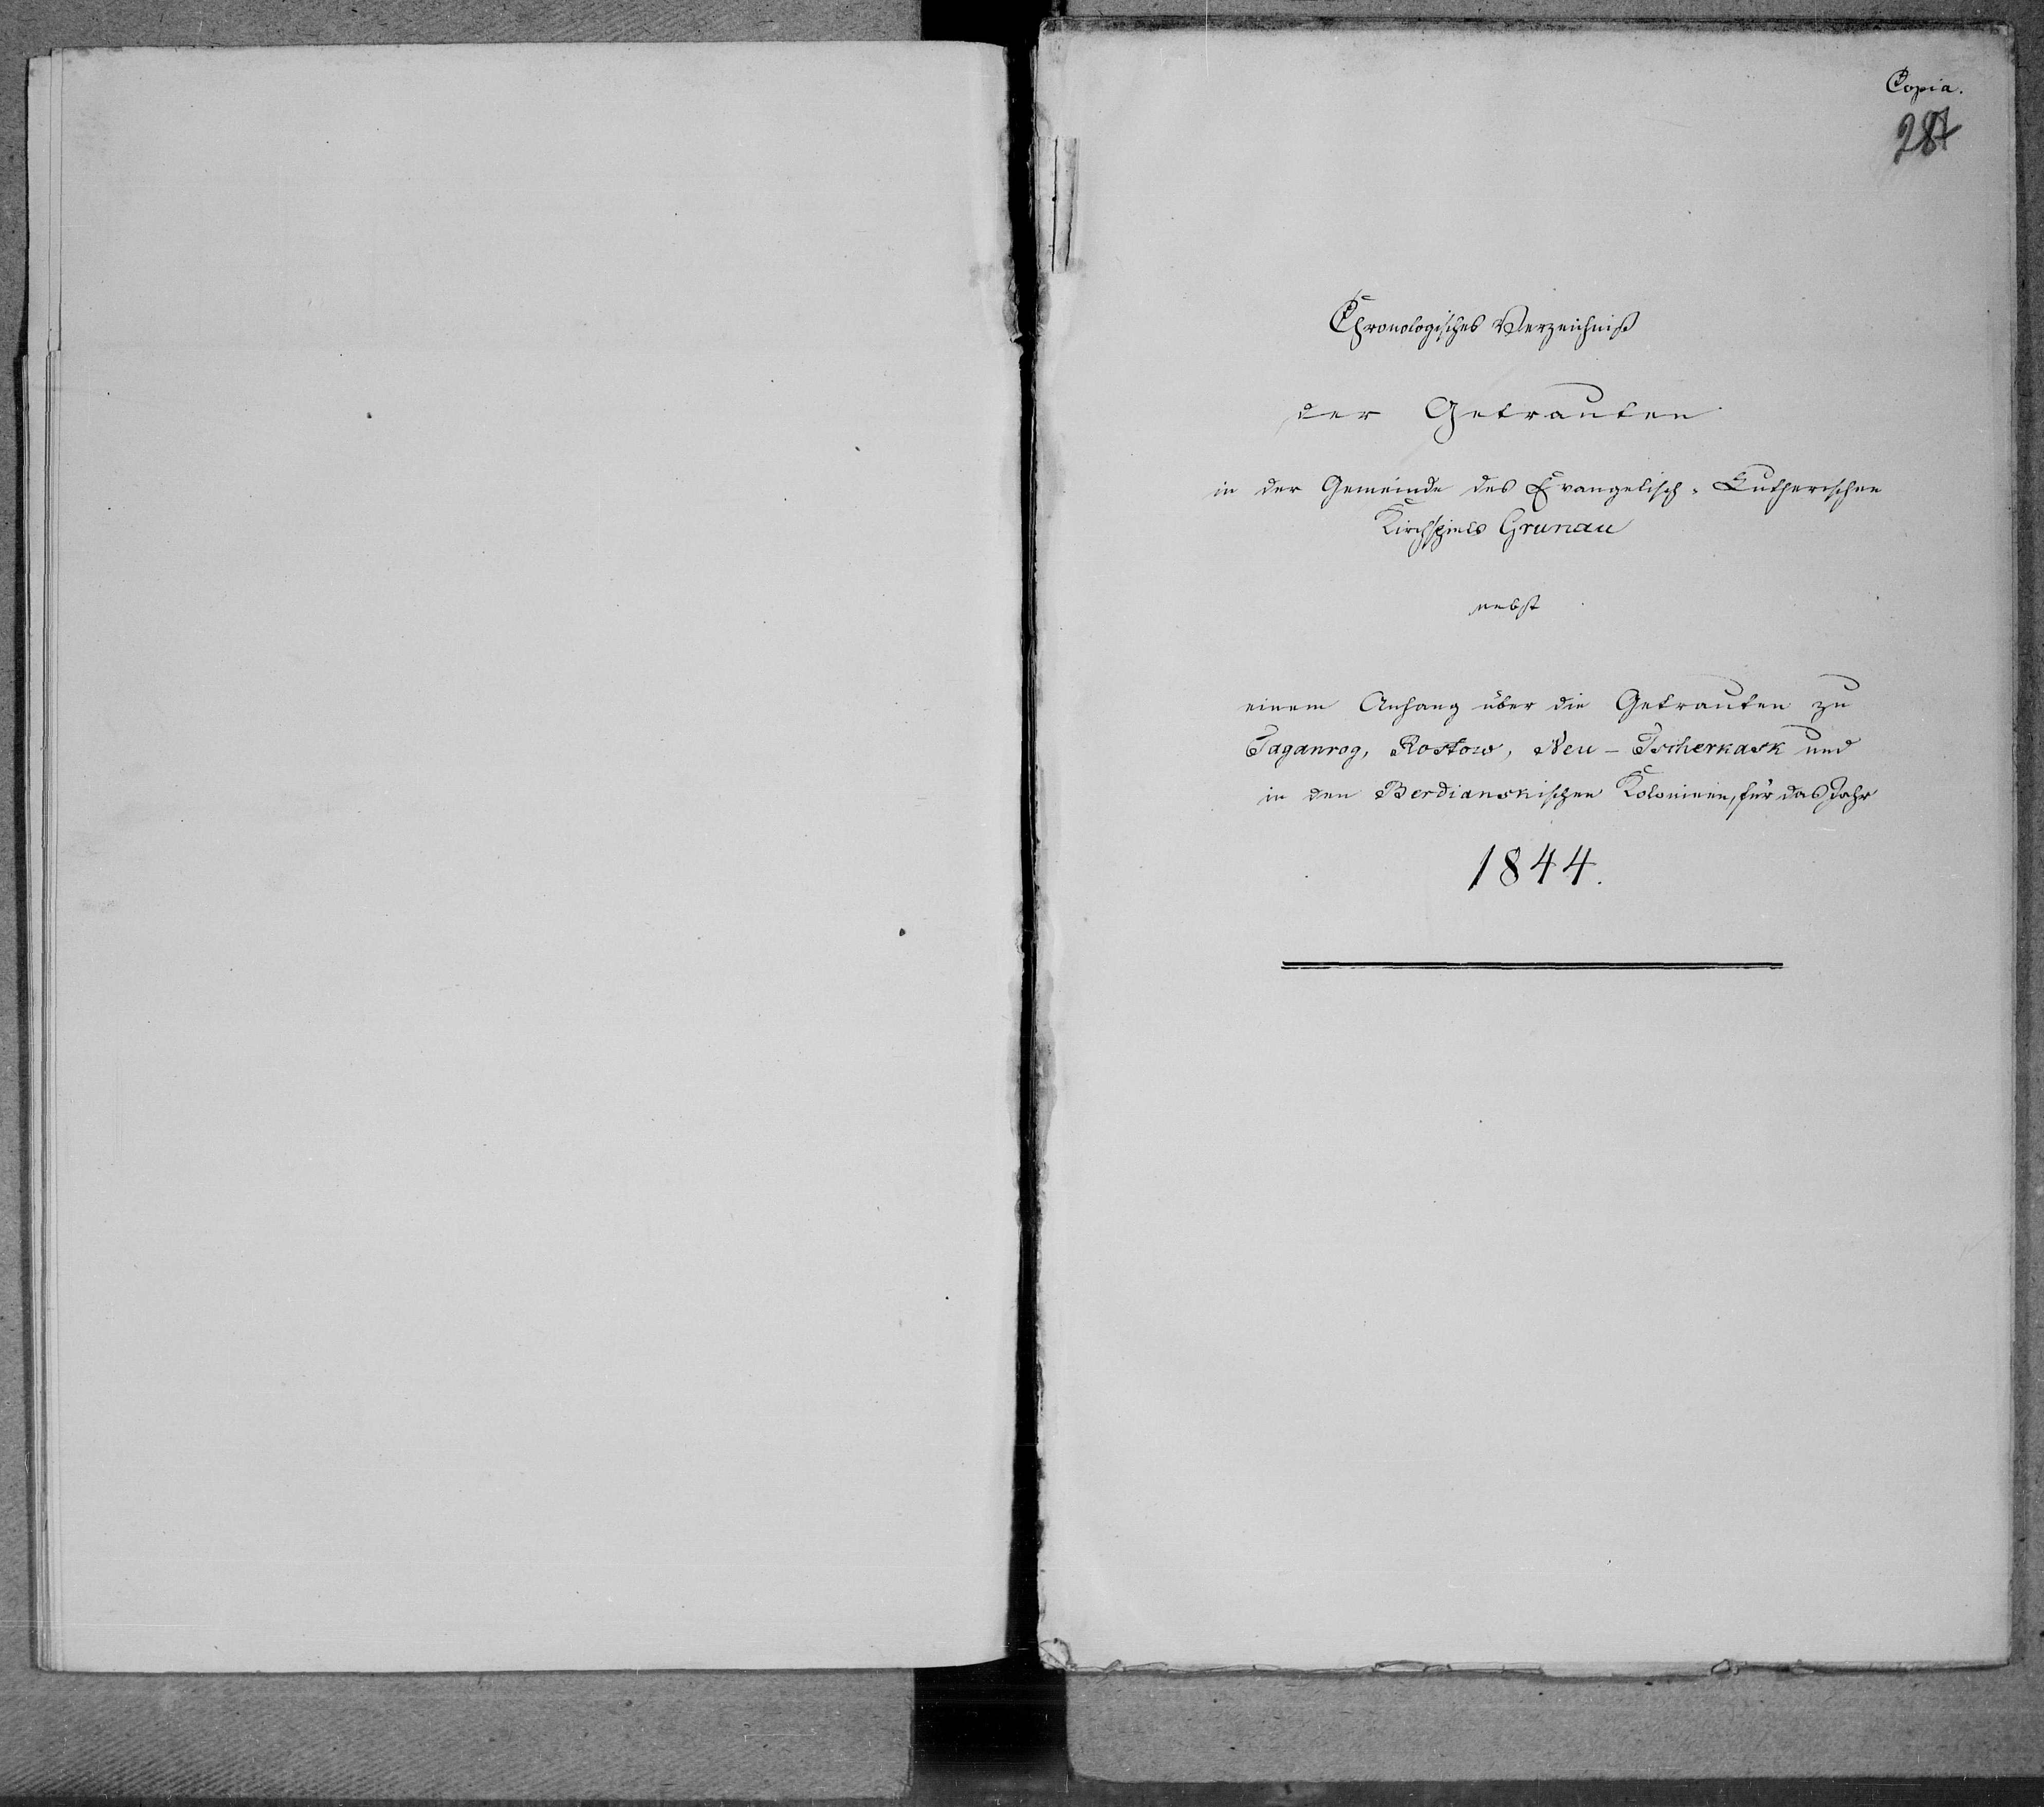 Copia.
287
Chronologisches Verzeichniß
der Getrauten
in der Gemeinde des Evangelisch-Lutherischen
Kirchspiels Grunau
nebst
einem Anhang über die Getrauten zu
Taganrog, Rostow, Neu-Tscherkask und
in den Berdianskischen Kolonieen, für das Jahr
1844.